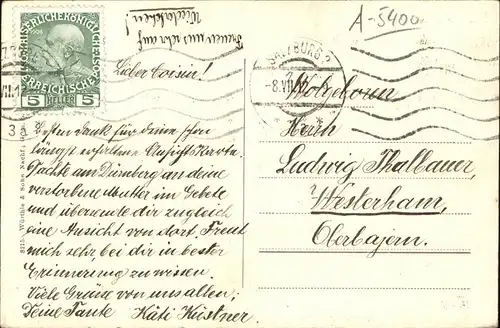 KAISERLICHE KÖNIGLICHE
ÖSTERREICHISCHE POST
5 HELLER 5
Freuen uns sehr auf
Wiedersehen!
A-5400
SALZBURG 2
-8.VII.
3a
Lieber Cousin!
Besten Dank für deine schon
längst erhaltene Ansichtskarte.
Dachte am Dürnberg an deine
verstorbene Mutter im Gebete
und übersende dir zugleich
eine Ansicht von dort. Freut
mich sehr, bei dir in bester
Erinnerung zu wissen.
Viele Grüße von uns allen;
Deine Tante Kati Küstner.
Wohlgeboren
Herrn
Ludwig Thalbauer,
Westerham,
Oberbajern.
8115 Würthle & Sohn Nachf.